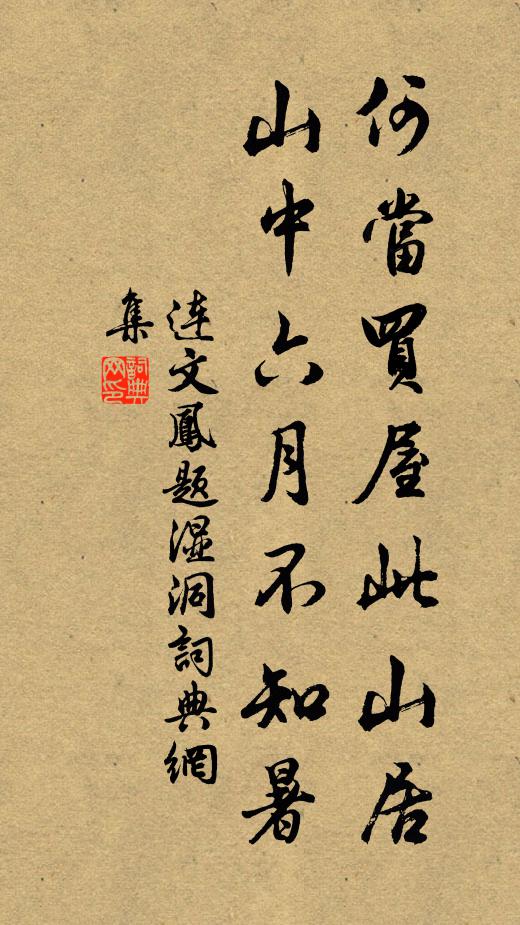 何當買屋此山居
山中六月不知暑
連文鳳題湿洞詞典網
集
詞典
网印